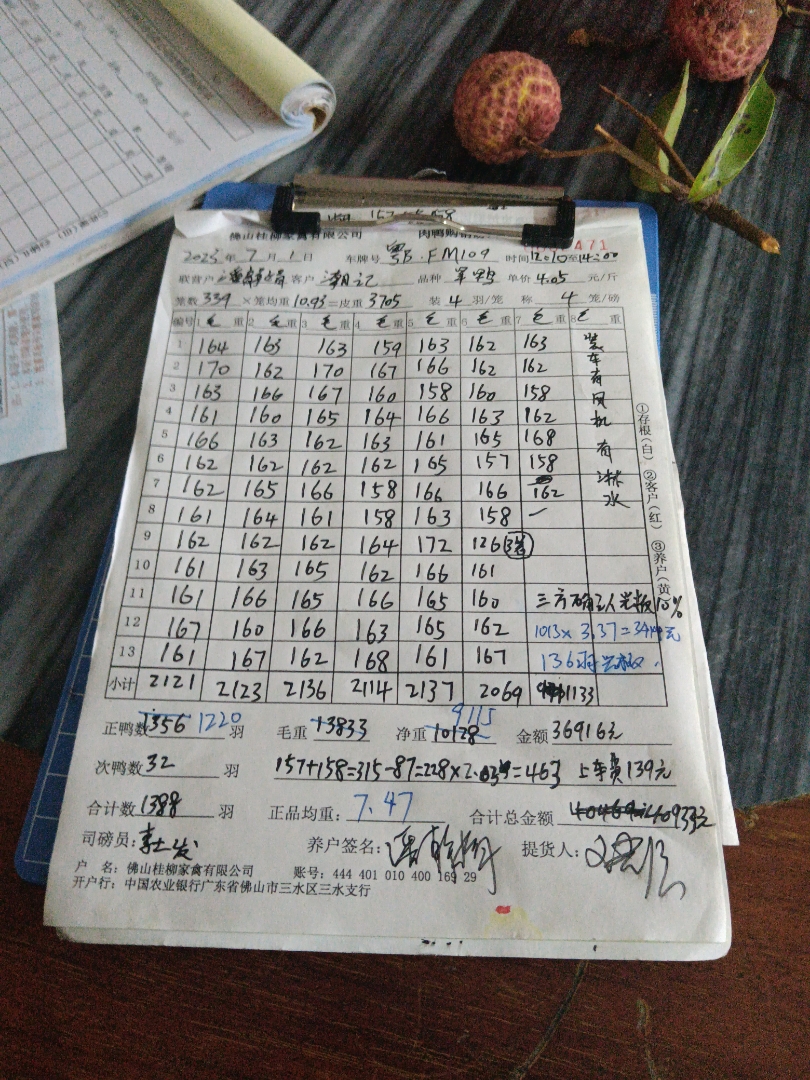 佛山桂柳家禽有限公司 肉鸭购销
2023年 7 月 1 日 车牌号 粤B·FM109 时间12:10至14:00
联营户 客户 潮记 品种 单价 4.05 元/斤
笼数 339 ×笼均重 10.93 =皮重 3705 装 4 羽/笼 称 4 笼/磅
编号 1 毛 重 2 毛 重 3 毛 重 4 毛 重 5 毛 重 6 毛 重 7 毛 重 8 毛 重
1 164 163 163 159 163 162 163
2 170 162 170 167 166 162 162
3 163 166 167 160 158 160 158
4 161 160 165 164 166 163 162
5 166 163 162 163 161 165 168
6 162 162 162 162 165 157 158
7 162 165 166 158 166 166 162
8 161 164 161 158 163 158 —
9 162 162 162 164 172 126
10 161 163 165 162 166 161
11 161 166 165 166 165 160
12 167 160 166 163 165 162
13 161 167 162 168 161 167
小计 2121 2123 2136 2114 2137 2069 1133
装车有风机 有淋水
①存根(白) ②客户(红) ③养户(黄)
正鸭数 1356 1220 羽 毛重 13833 净重 10128 9115 金额 36916元
次鸭数 32 羽 157+158=315-87=228×2.03=463 上车费139元
合计数 1388 羽 正品均重: 7.47 合计总金额 40933元
司磅员: 养户签名: 提货人:
户 名: 佛山桂柳家禽有限公司 账号: 444 401 010 400 169 29
开户行: 中国农业银行广东省佛山市三水区三水支行